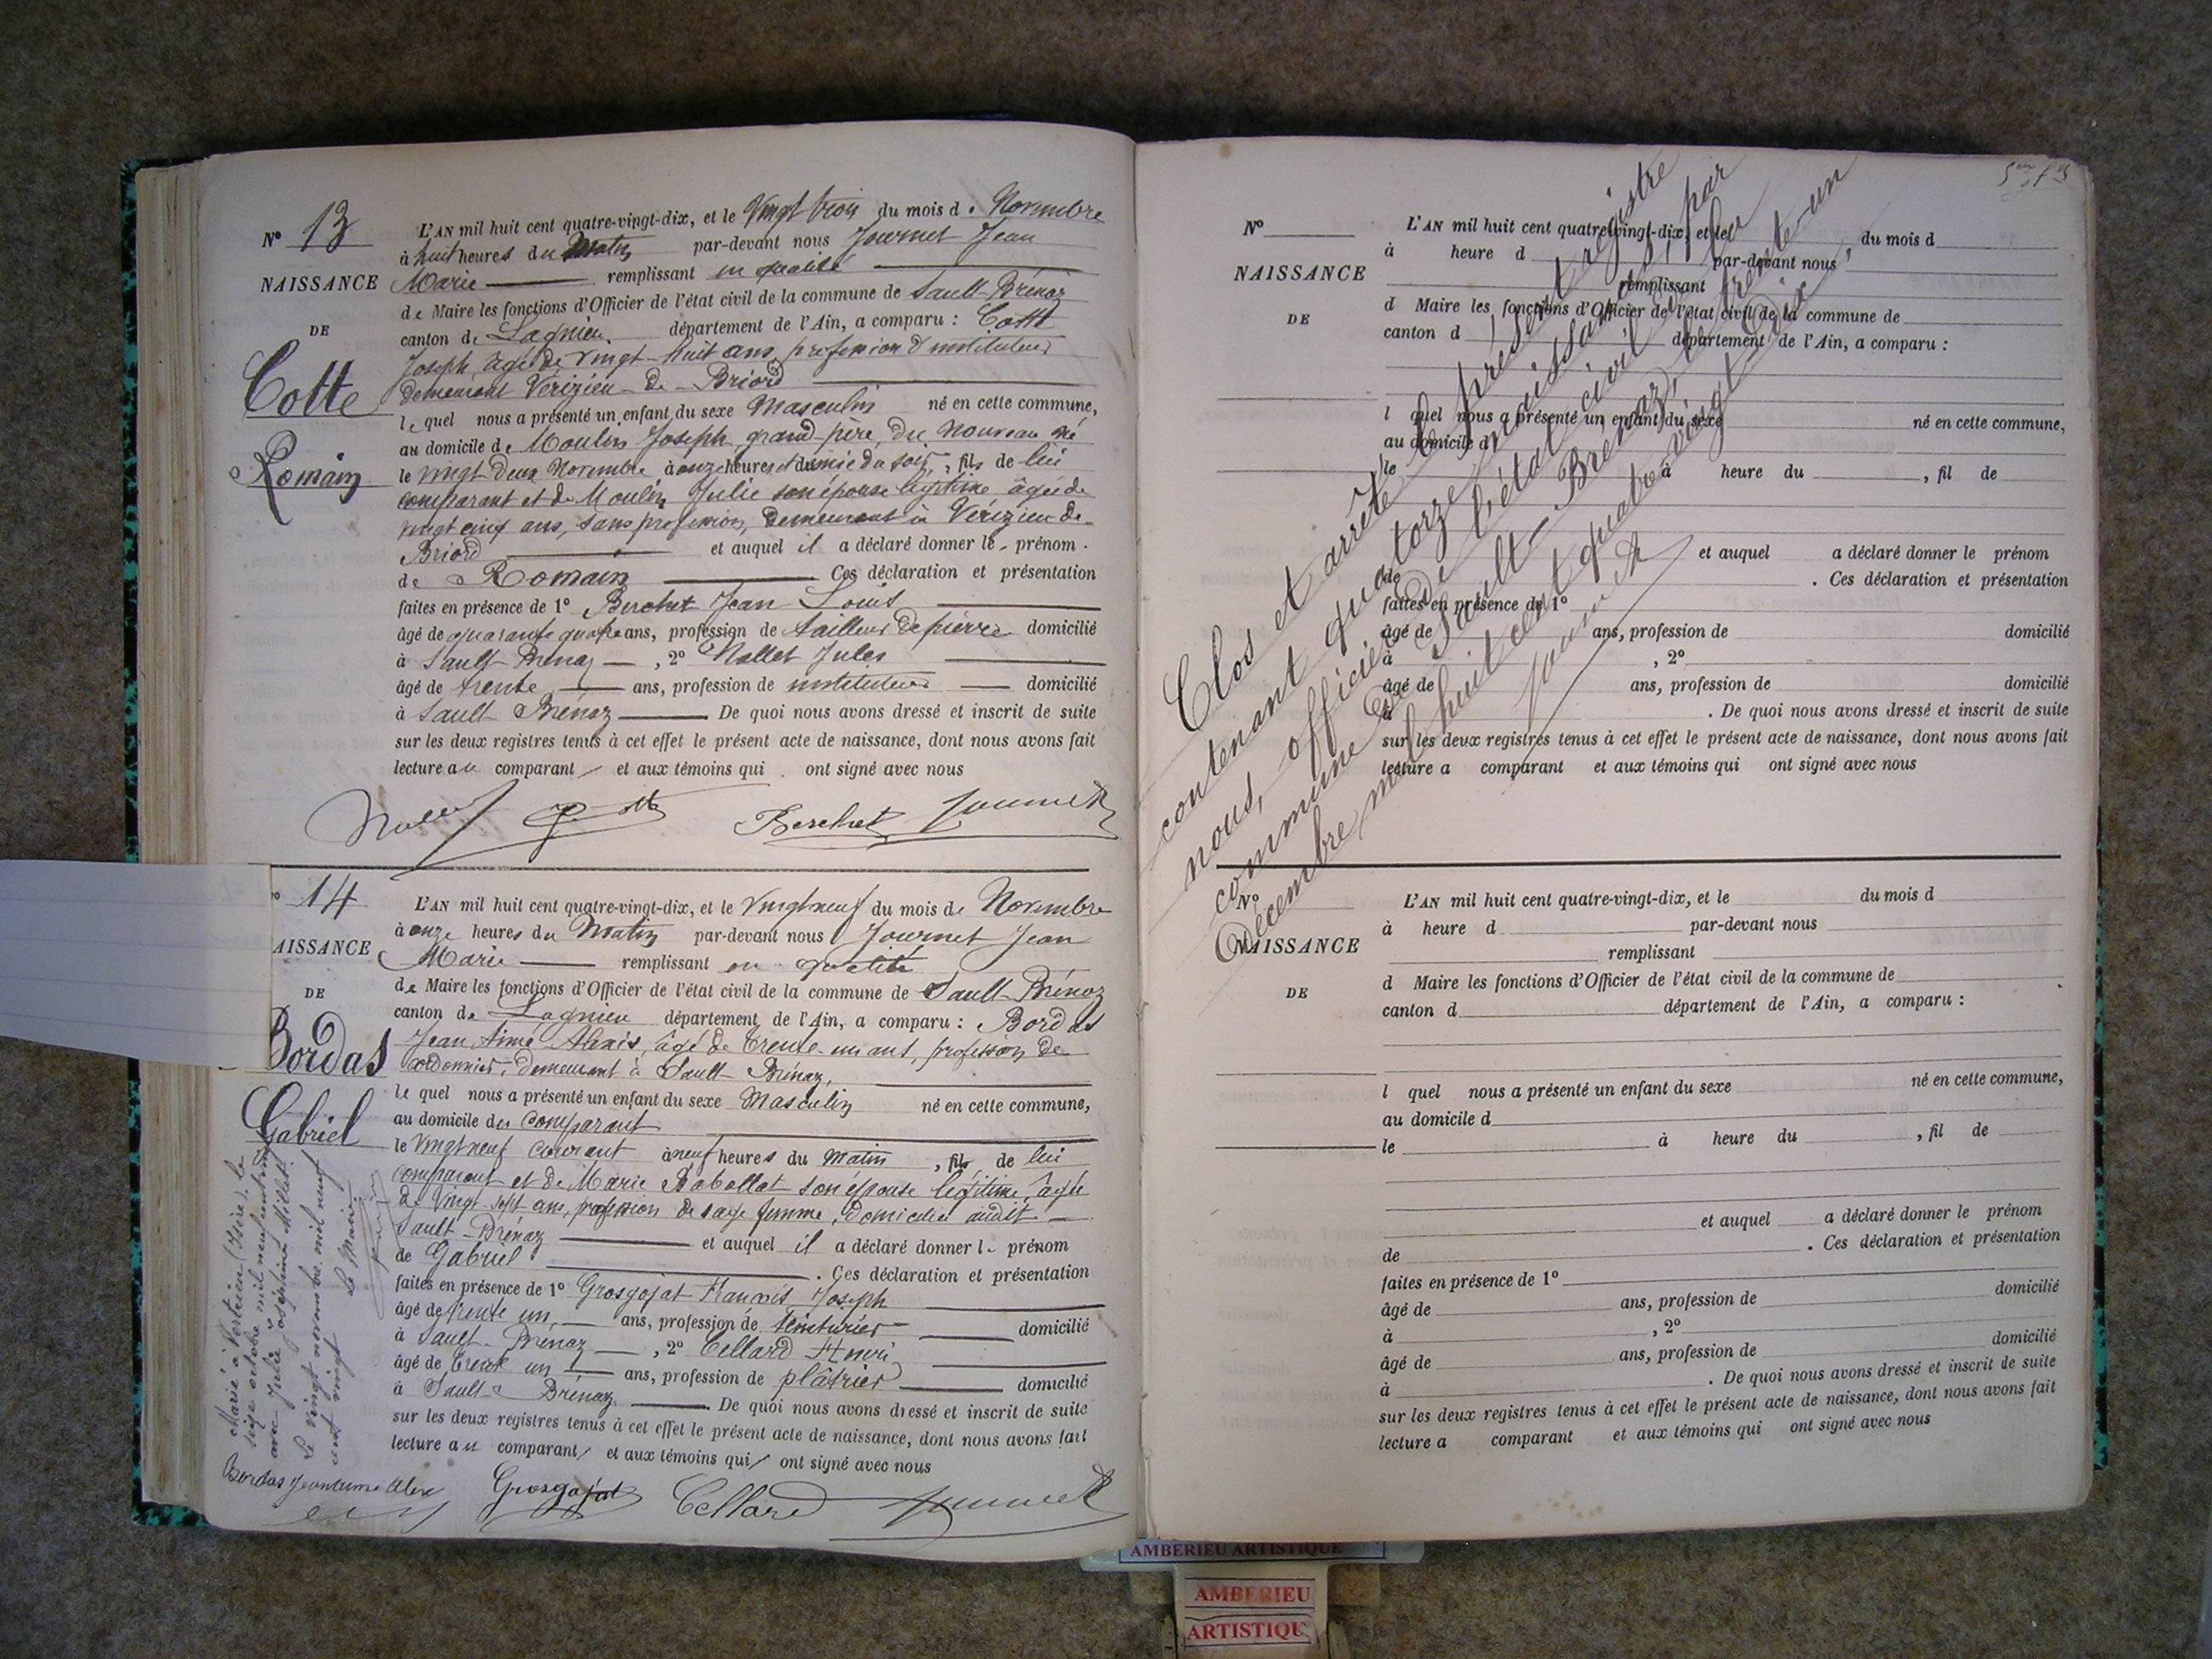 N° 13
NAISSANCE
DE
Cotte
Romain
L'AN mil huit cent quatre-vingt-dix, et le Vingt trois du mois d. Novembre
à huit heures du Matin par-devant nous Journet Jean
Marie remplissant en qualité
de Maire les fonctions d'Officier de l'état civil de la commune de Sault-Brénaz
canton de Lagnieu département de l'Ain, a comparu : Cotte
Joseph, âgé de vingt-huit ans, profession d'instituteur
demeurant Vérizieu-de-Briord
le quel nous a présenté un enfant du sexe Masculin né en cette commune,
au domicile de Moulin Joseph, grand-père, du nouveau né
le vingt deux Novembre à onze heures et demie du soir, fils de lui
comparant et de Moulin Julie son épouse légitime âgée de
vingt cinq ans, sans profession, demeurant à Vérizieu-de-
Briord et auquel il a déclaré donner le prénom
de Romain Ces déclaration et présentation
faites en présence de 1° Berchet Jean Louis
âgé de quarante quatre ans, profession de tailleur de pierre domicilié
à Sault-Brénaz, 2° Nallet Jules
âgé de trente ans, profession de instituteur domicilié
à Sault-Brénaz De quoi nous avons dressé et inscrit de suite
sur les deux registres tenus à cet effet le présent acte de naissance, dont nous avons fait
lecture au comparant et aux témoins qui ont signé avec nous
Berchet Journet
° 14
AISSANCE
DE
Bordas
Gabriel
L'AN mil huit cent quatre-vingt-dix, et le Vingt neuf du mois de Novembre
à onze heures du Matin par-devant nous Journet Jean
Marie remplissant en qualité
de Maire les fonctions d'Officier de l'état civil de la commune de Sault-Brénaz
canton de Lagnieu département de l'Ain, a comparu : Bordas
Jean Aimé Alexis, âgé de trente-un ans, profession de
cordonnier, demeurant à Sault-Brénaz,
le quel nous a présenté un enfant du sexe Masculin né en cette commune,
au domicile du comparant
le vingt neuf courant à neuf heures du matin, fils de lui
comparant et de Marie Babollat son épouse légitime, âgée
de Vingt-sept ans, profession de sage femme, domiciliée audit
Sault-Brénaz et auquel il a déclaré donner le prénom
de Gabriel. Ces déclaration et présentation
faites en présence de 1° Grosgojat François Joseph
âgé de trente un, ans, profession de teinturier domicilié
à Sault-Brénaz, 2° Cellard Henri
âgé de trente un ans, profession de plâtrier domicilié
à Sault-Brénaz. De quoi nous avons dressé et inscrit de suite
sur les deux registres tenus à cet effet le présent acte de naissance, dont nous avons fait
lecture au comparant et aux témoins qui ont signé avec nous
Marié à Vertrieu (Isère) le
seize octobre mil neuf cent vingt
avec Julie Joséphine Millet
Le vingt novembre mil neuf
cent vingt Le Maire
Grosgojat Cellard Journet
N°
NAISSANCE
DE
L'AN mil huit cent quatre-vingt-dix, et le du mois d
à heure d par-devant nous
remplissant
d Maire les fonctions d'Officier de l'état civil de la commune de
canton d département de l'Ain, a comparu :
l quel nous a présenté un enfant du sexe né en cette commune,
au domicile d
le à heure du , fil de
et auquel a déclaré donner le prénom
de . Ces déclaration et présentation
faites en présence de 1°
âgé de ans, profession de domicilié
à , 2°
âgé de ans, profession de domicilié
à . De quoi nous avons dressé et inscrit de suite
sur les deux registres tenus à cet effet le présent acte de naissance, dont nous avons fait
lecture a comparant et aux témoins qui ont signé avec nous
Clos et arrêté le présent registre
contenant quatorze naissances, par
nous, officier de l'état civil de la
commune de Sault-Brénaz, le trente-un
Décembre mil huit cent quatre-vingt-dix,
Journet
N°
NAISSANCE
DE
L'AN mil huit cent quatre-vingt-dix, et le du mois d
à heure d par-devant nous
remplissant
d Maire les fonctions d'Officier de l'état civil de la commune de
canton d département de l'Ain, a comparu :
l quel nous a présenté un enfant du sexe né en cette commune,
au domicile d
le à heure du , fil de
et auquel a déclaré donner le prénom
de . Ces déclaration et présentation
faites en présence de 1°
âgé de ans, profession de domicilié
à , 2°
âgé de ans, profession de domicilié
à . De quoi nous avons dressé et inscrit de suite
sur les deux registres tenus à cet effet le présent acte de naissance, dont nous avons fait
lecture a comparant et aux témoins qui ont signé avec nous
AMBERIEU ARTISTIQUE
AMBERIEU
ARTISTIQU